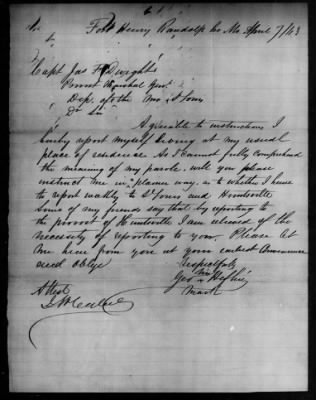 Fort Henry Randolph Co Mo April 7/63
Capt Jas F Dwight
Provost Marshal Genl
Dep of the Mo St Louis
Dr Sir
Agreeable to instructions I
hereby report myself living at my usual
place of residence. As I cannot fully comprehend
the meaning of my parole. will you please
instruct me in planer way, as to whether I have
to report weekly to St Louis and Huntsville
Some of my friends say that by reporting to
the provost of Huntsville I am releaced of the
necessity of reporting to you. Please let
me hear from you at your earliest
and oblige
Respectfully
his
Geo x
mark
Attest